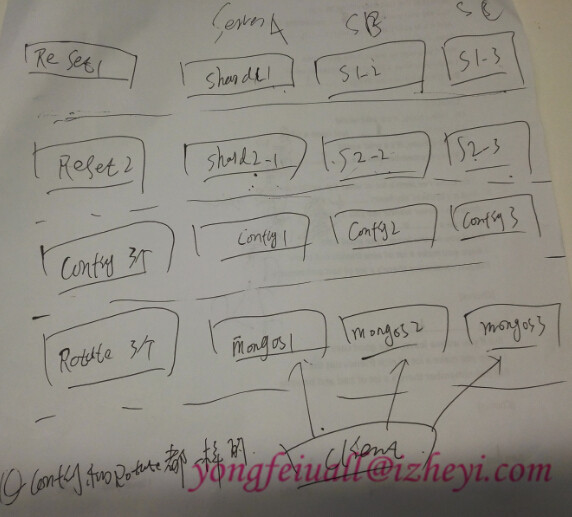 Server A SB SC
Re Set1 Shard1-1 S1-2 S1-3
ReSet2 Shard2-1 S2-2 S2-3
Config 3个 Config1 Config2 Config3
Rotute 3个 mongos1 mongos2 mongos3
Client
Config和Rotute都
yongfeiuall@izheyi.com